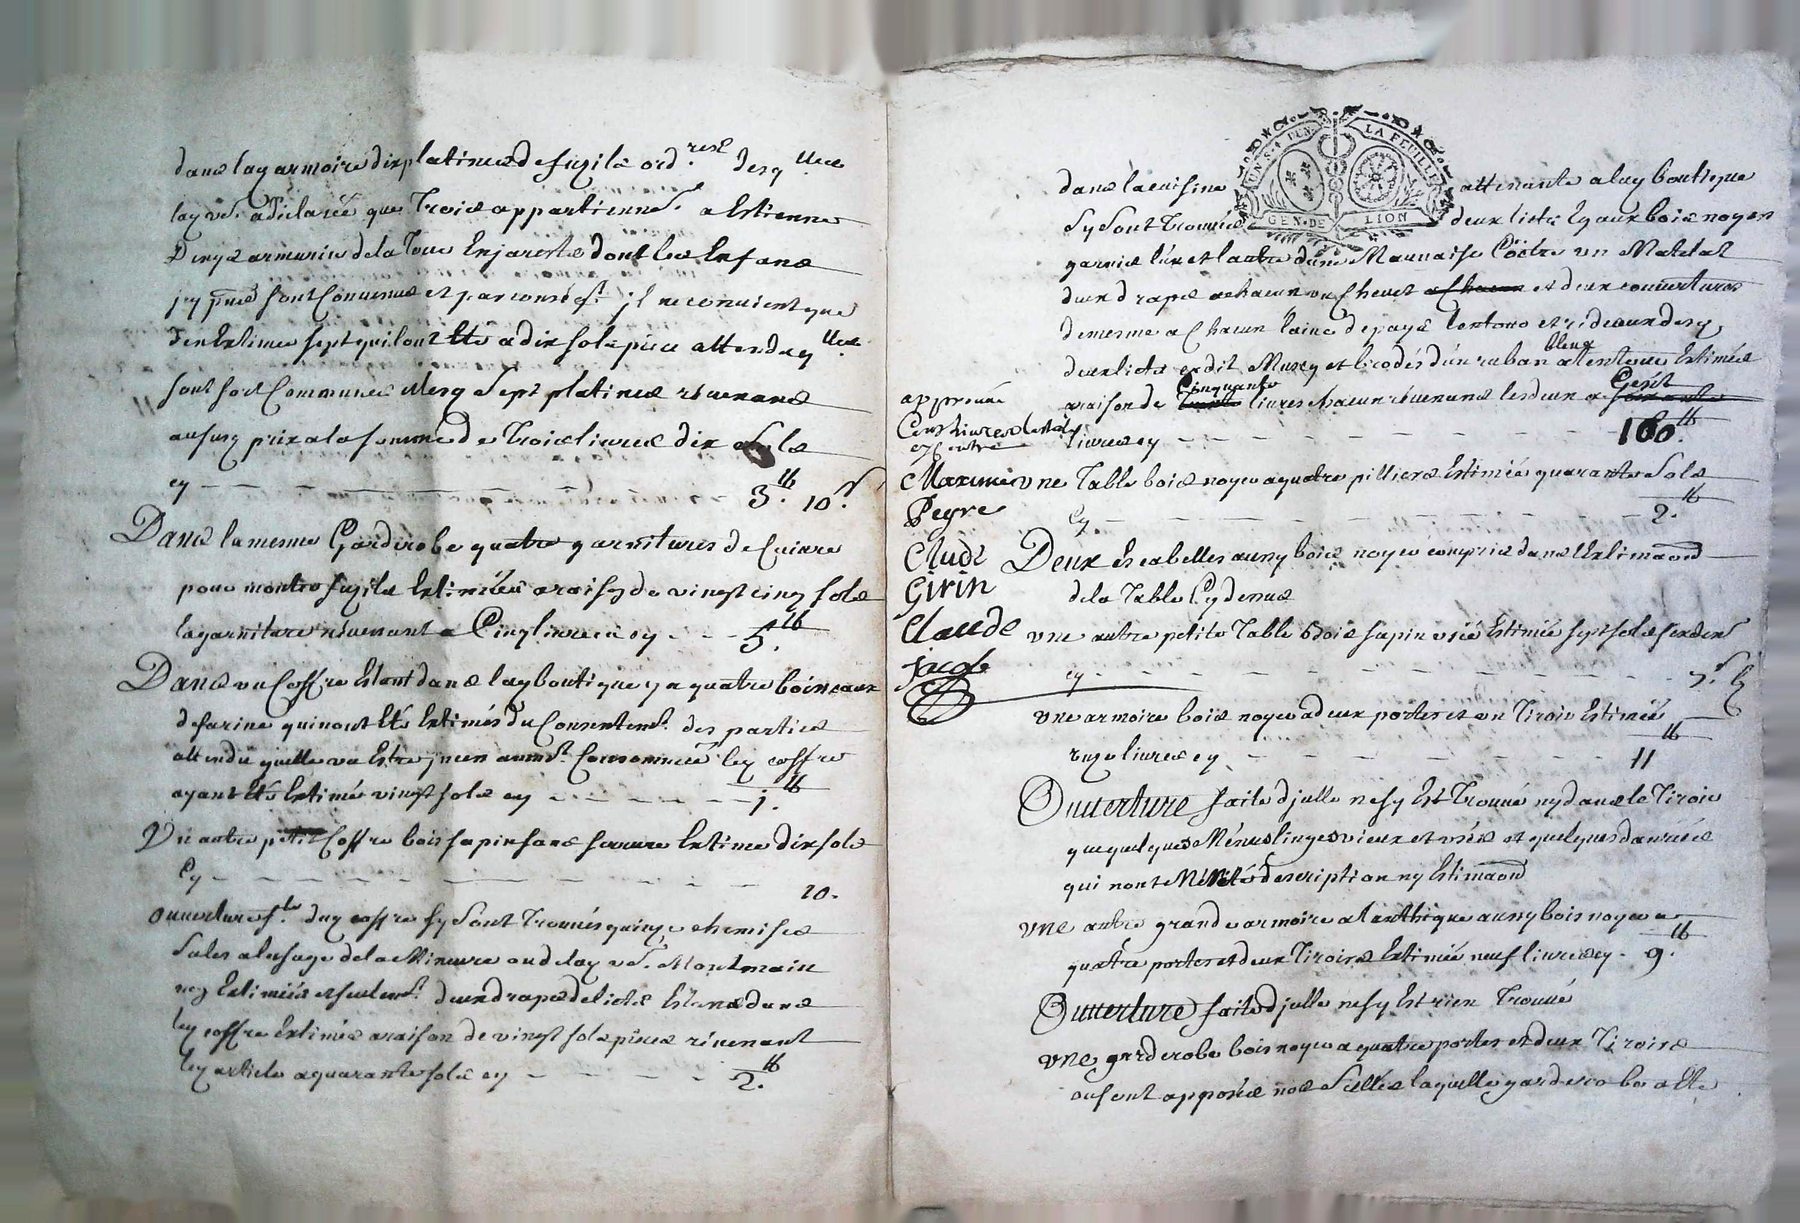 dans lad armoire dix platines de fuzils ord.res desq.lles
lad ve. a déclaré que trois appartienne.t a Estienne
armurier de la Tour En jarestz dont les Enfans
icy pnts sont Convenus et par conseq.t il ne convient que
d'en Estimer sept qui ont Etté a dix sols piece attendu q lles
sont fort Communes Lesq Sept platines revenans
aud prix a la somme de trois livres dix sols
cy 3.lb 10.s
Dans la mesme Garderobe quatre garnitures de Cuivre
pour monter fuzils Estimées a raison de vingt cinq sols
la garniture revenant a Cinq livres cy 5.lb
Dans un Coffre Estant dans lad boutique y a quatre boisseaux
de farine qui n'ont Eté Estimés du Consentem.t des parties
attendu quelle va Estre Consommée led coffre
ayant Eté Estimé vingt sols cy 1.lb
Un autre petit Coffre bois sapin sans serrure Estimé dix sols
Cy 10.
Ouverture f.te dud coffre sy sont trouvés quinze chemises
sales a lusage de la Mineure ou de lad ve. Montmain
non Estimées et seulem.t deux draps de licts Estans dans
led coffre Estimés a raison de vingt sols piece revenant
led article a quarante sols cy 2.lb
UN S. 4 DEN. LA FEUILLE
GEN. DE LION
dans la cuisine attenante a lad boutique
sy sont trouvés deux licts Egaux bois noyer
garnis l'un et l'autre dune Mauvaise Coëtre un Matelat
deux draps a chacun un Chevet a Chacun et deux couvertures
de mesme a Chacun laine de pays lentour et rideaux desd
bleux
deux licts cadit Muscy et brodés d'un ruban a lentour Estimés
Cinquante Cent
a raison de trente livres chacun revenans les deux a soixante
livres cy 100.lb
approuvé
Cent livres
Maxime
Peyre
Claude
Girin
Claude
jacob
une Table bois noyer a quatre pilliers Estimée quarante sols
Cy 2.lb
Deux Escabelles aussy bois noyer compris dans l'Estimaon
de la Table Cy dessus
une autre petite Table bois sapin usée Estimée sept sols six den.
cy 7.s 6
une armoire bois noyer a deux portes et un Tiroir Estimée
unze livres cy 11 lb
Ouverture faite d'jcelle ne sy Est trouvé ny dans le Tiroir
que quelques Ménus linges vieux et usés et quelques danrées
qui n'ont Mérité description ny Estimaon
une autre grande armoire a lanthique aussy bois noyer a
quatre portes et deux Tiroirs Estimée neuf livres cy 9.lb
Ouverture faite d'jcelle ne sy Est rien Trouvé
une garderobe bois noyer a quatre portes et deux Tiroirs
ou sont apposés nos sellés laquelle garderobe a Eté